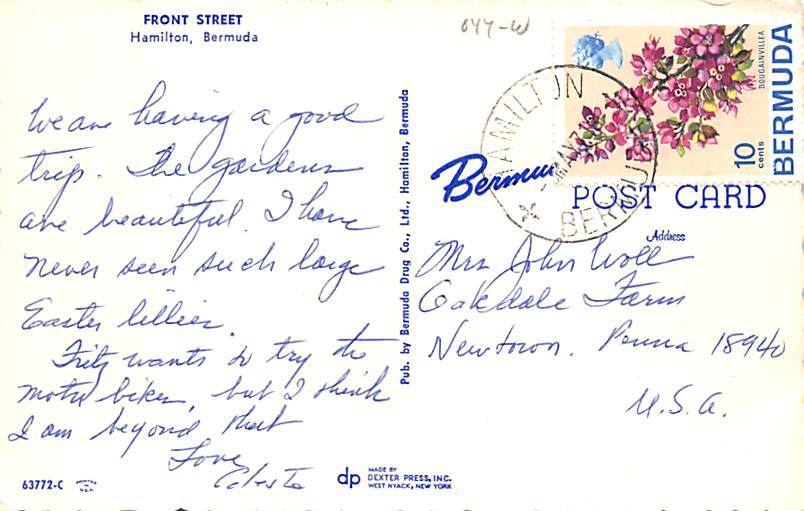 FRONT STREET
Hamilton, Bermuda
044-W
We are having a good
trip. The gardens
are beautiful. I have
never seen such large
Easter lillies.
Fritz wants to try the
motor bikes, but I think
I am beyond that
Love
Celeste
63772-C
Pub. by Bermuda Drug Co., Ltd., Hamilton, Bermuda
dp
MADE BY
DEXTER PRESS, INC.
WEST NYACK, NEW YORK
BOUGAINVILLEA
10
cents
BERMUDA
HAMILTON
BERMUDA
Bermuda
POST CARD
Address
Mrs John Woll
Oakdale Farm
Newtown. Penna 18940
U.S.A.